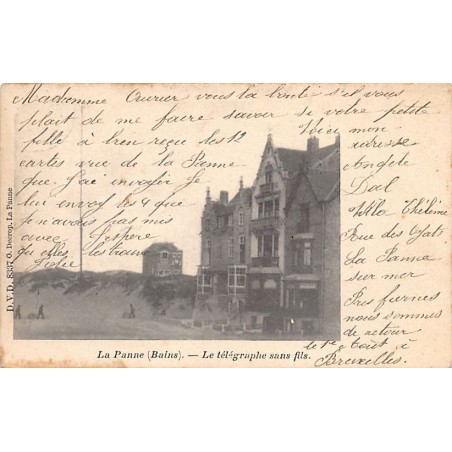 Madamme Ourier vous la bonté s'il vous
plait de me faire savoir si votre petite
fille à bien reçue les 12
cartes vue de la Panne
que j'ai envoyer je
lui envoy les 4 que
je n'avais pas mis
avec J'espere
qu'elles les
Voici mon
adresse
Angele
Dal
Villa Thélème
Rue des Yats
La Panne
sur mer
Pres furnes
nous sommes
de retour
le 1e Août à
Bruxelles.
D.V.D. 8357 O. Decop, La Panne
La Panne (Bains). — Le télégraphe sans fils.